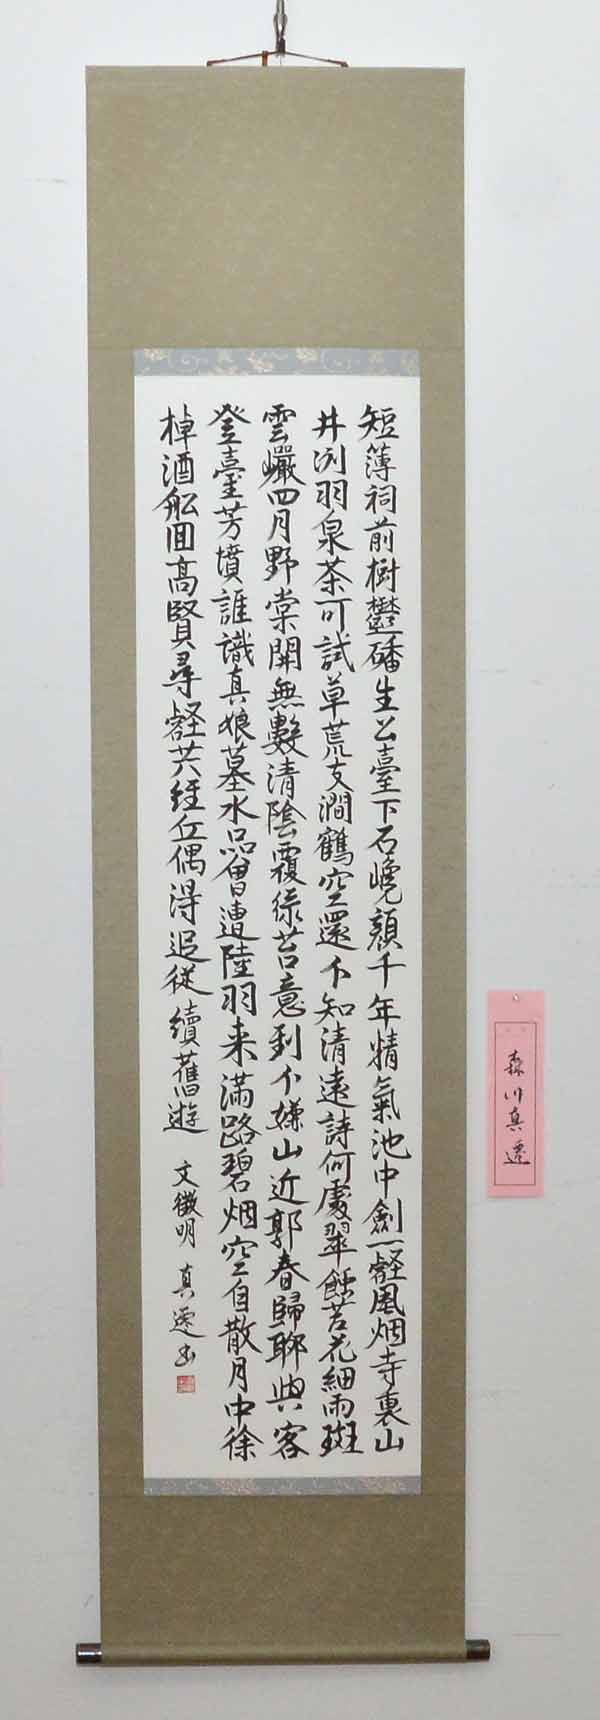 短薄祠前樹鬱蟠生公臺下石巉顔千年精氣池中劍一壑風烟寺裏山
井冽羽泉茶可試草荒支澗鶴空還不知清遠詩何處翠蝕苔花細雨斑
雲巖四月野棠開無數清陰覆綠苔意到不嫌山近郭春歸聊與客
登臺芳墳誰識真娘墓水品曾遭陸羽来滿路碧烟空自散月中徐
棹酒舩囬高賢尋壑共經丘偶得追從續舊遊
文徴明 真邃書
森川真邃